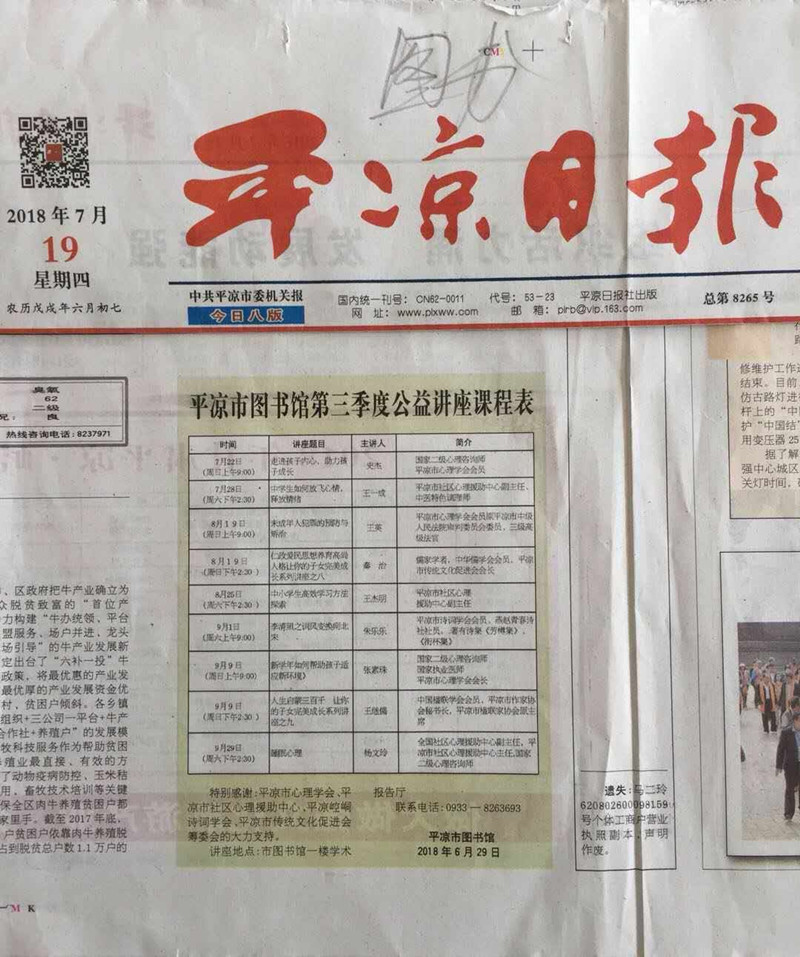 图书
CMY
平凉日报
2018年7月
19
星期四
农历戊戌年六月初七
中共平凉市委机关报
今日八版
国内统一刊号：CN62-0011 代号：53-23 平凉日报社出版
网 址：www.plxww.com 邮 箱：plrb@vip.163.com
总第 8265 号
臭氧
62
二级
良
热线咨询电话：8237971
、区政府把牛产业确立为
众脱贫致富的“首位产
力构建“牛办统领、平台
盟服务、场户并进、龙头
场引导”的牛产业发展新
定出台了“六补一投”牛
政策，将最优惠的产业发
最优厚的产业发展资金优
村、贫困户倾斜。各乡镇
组织+三公司一平台+牛产
合作社+养殖户”的发展模
牧科技服务作为帮助贫困
养殖业最直接、有效的方
了动物疫病防控、玉米秸
用、畜牧技术培训等关键
保全区肉牛养殖贫困户都
家里手。截至2017年底，
户贫困户依靠肉牛养殖脱
占到脱贫总户数1.1万户的
M K
平凉市图书馆第三季度公益讲座课程表
时间 讲座题目 主讲人 简介
7月22日 走进孩子内心、助力孩 史杰 国家二级心理咨询师
(周日上午9:00) 子成长 平凉市心理学会会员
7月28日 中学生如何放飞心情， 王一成 平凉市社区心理援助中心副主任、
(周六下午2:30) 释放情绪 中医特色调理师
8月19日 未成年人犯罪的预防与 王英 平凉市心理学会会员原平凉市中级
(周日上午9:00) 矫治 人民法院审判委员会委员，三级高
级法官
8月19日 仁政爱民思想养育高尚 秦治 儒家学者，中华儒学会会员，平凉
(周日下午2:30) 人格让你的子女完美成 市传统文化促进会会长
长系列讲座之八
8月25日 中小学生高效学习方法 王杰明 平凉市社区心理
(周六下午2:30) 探索 援助中心副主任
9月1日 李清照之词风变换闯北 朱乐乐 平凉市诗词学会会员，燕赵青春诗
(周六上午9:00) 宋 社社员，著有诗集《芳樽集》、
《衔杯集》
9月9日 新学年如何帮助孩子适 张素珠 国家二级心理咨询师
(周日上午9:00) 应新环境》 国家执业医师
平凉市心理学会会长
9月9日 人生自蒙三百千 让你 王继儒 中国楹联学会会员，平凉市作家协
(周日下午2:30) 的子女完美成长系列讲 会秘书长，平凉市楹联家协会原主
座之九 席
9月29日 睡眠心理 杨文玲 全国社区心理援助中心副主任，平
(周六下午2:30) 凉市社区心理援助中心主任,国家
二级心理咨询师
特别感谢：平凉市心理学会、平
凉市社区心理援助中心、平凉崆峒
诗词学会、平凉市传统文化促进会
筹委会的大力支持。
讲座地点：市图书馆一楼学术
报告厅
联系电话：0933—8263693
平凉市图书馆
2018年6月29日
遗失：马二玲
620802600098159
号个体工商户营业
执照副本，声明
作废。
修维护工作
结束。目前
仿古路灯进
杆上的“中
护“中国结
用变压器 25
据了解
强中心城区
关灯时间，